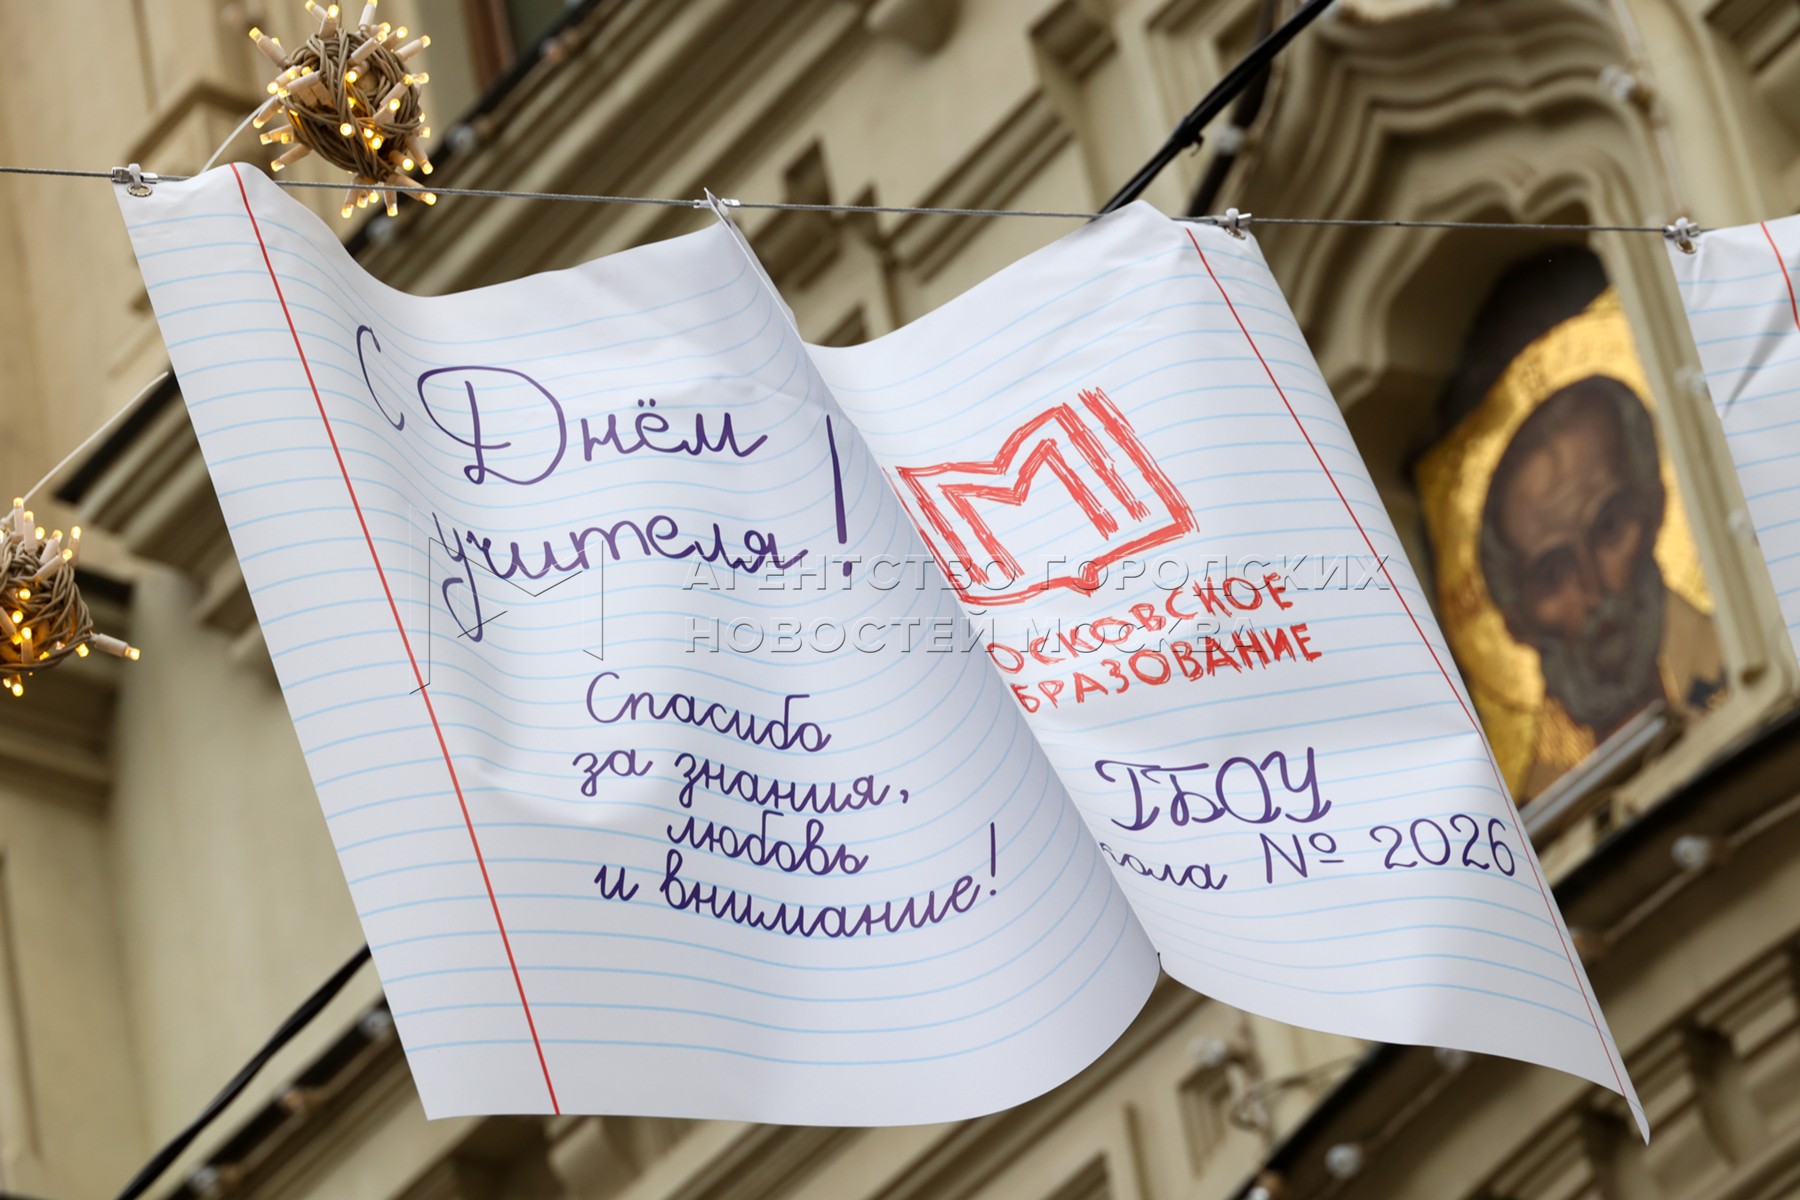 С Днём
учителя!
Спасибо
за знания,
любовь
и внимание!
ОСКОВСКОЕ
БРАЗОВАНИЕ
ГБОУ
ола № 2026
АГЕНТСТВО ГОРОДСКИХ
НОВОСТЕЙ МОСКВА